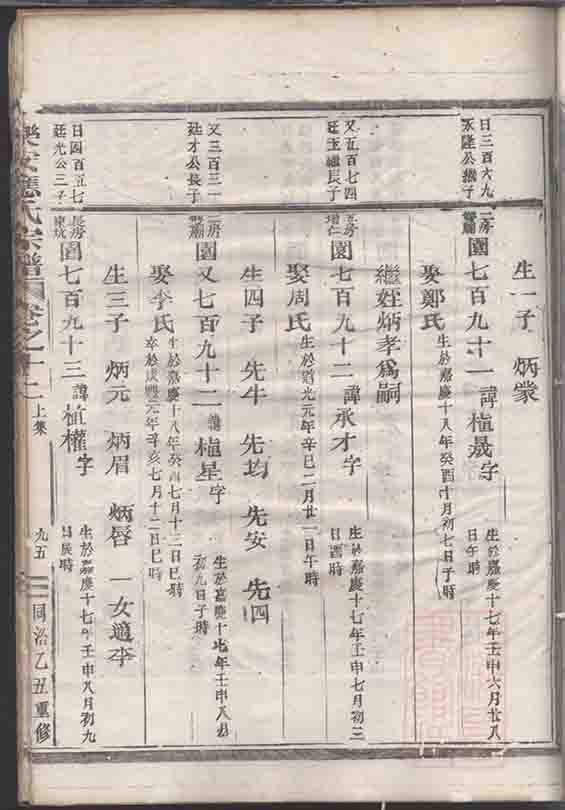 生一子　炳棠
日三百六九
永隆公繼子
二房
園七百九十一　諱植晟　字
生於嘉慶十七年壬申六月廿八
日午時
娶鄭氏
生於嘉慶十八年癸酉十月初七日子時
繼姪炳孝爲嗣
又五百七四
廷玉繼長子
五房
增仁
園七百九十二　諱承才　字
生於嘉慶十七年壬申七月初三
日酉時
娶周氏
生於道光元年辛巳二月廿一日午時
生四子　先牛　先均　先安　先四
又三百三一
廷才公長子
二房
園又七百九十二　諱植星　字
生於嘉慶十七年壬申八月
初九日子時
娶李氏
生於嘉慶十八年癸酉七月十三日巳時
卒於咸豐元年辛亥七月十二日巳時
生三子　炳元　炳眉　炳唇　一女適李
日四百五七
廷光公三子
長房
東坑
園七百九十三　諱植權　字
生於嘉慶十七年壬申八月初九
日辰時
樂安應氏宗譜　卷之十二　上集　九五　同治乙丑重修